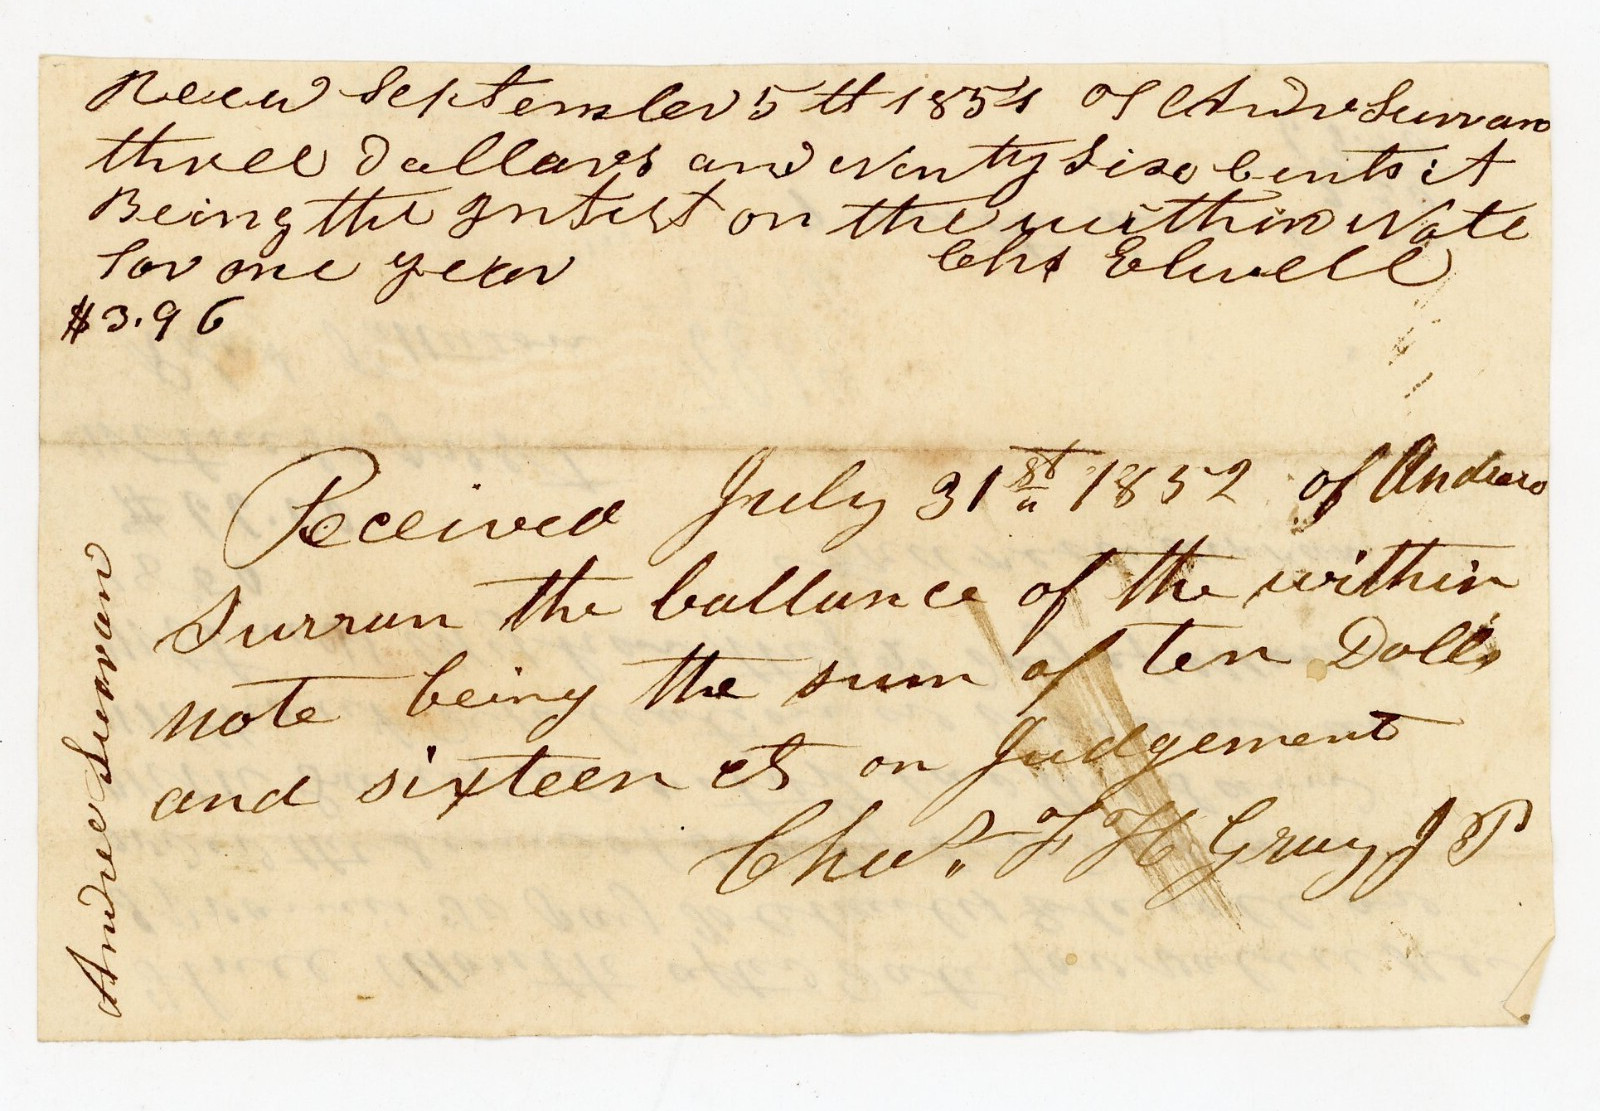 Received September 5th 1851 of Andw Surran
three Dollars and Ninty Six Cents it
Being the Intrest on the within Note
for one year
Chs Elwell
$3.96
Received July 31st 1852 of Andrew
Surran the ballance of the within
note being the sum of ten Dolls
and sixteen cts on Judgement
Chas. F H Gray J P
Andrew Surran